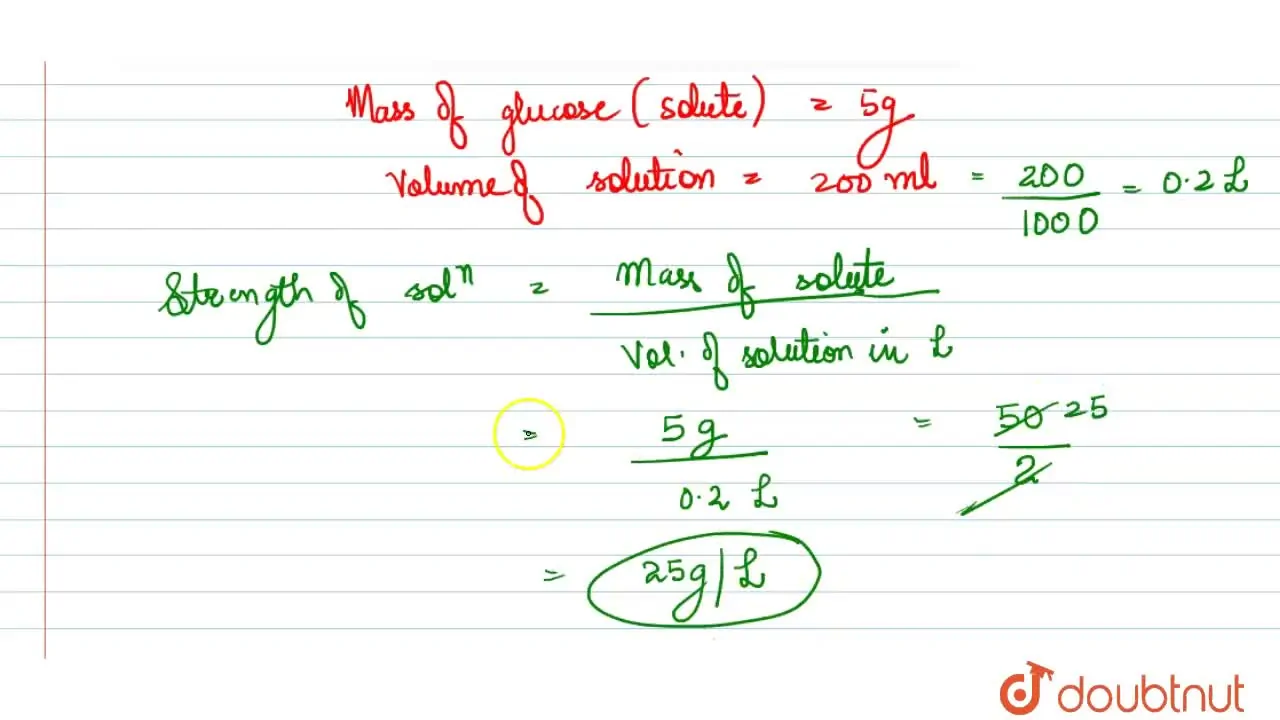 Mass of glucose (solute) = 5g
Volume of solution = 200 ml = 200/1000 = 0.2 L
Strength of solⁿ = Mass of solute / Vol. of solution in L
= 5g / 0.2 L = 50 25 / 2
= 25g/L
doubtnut